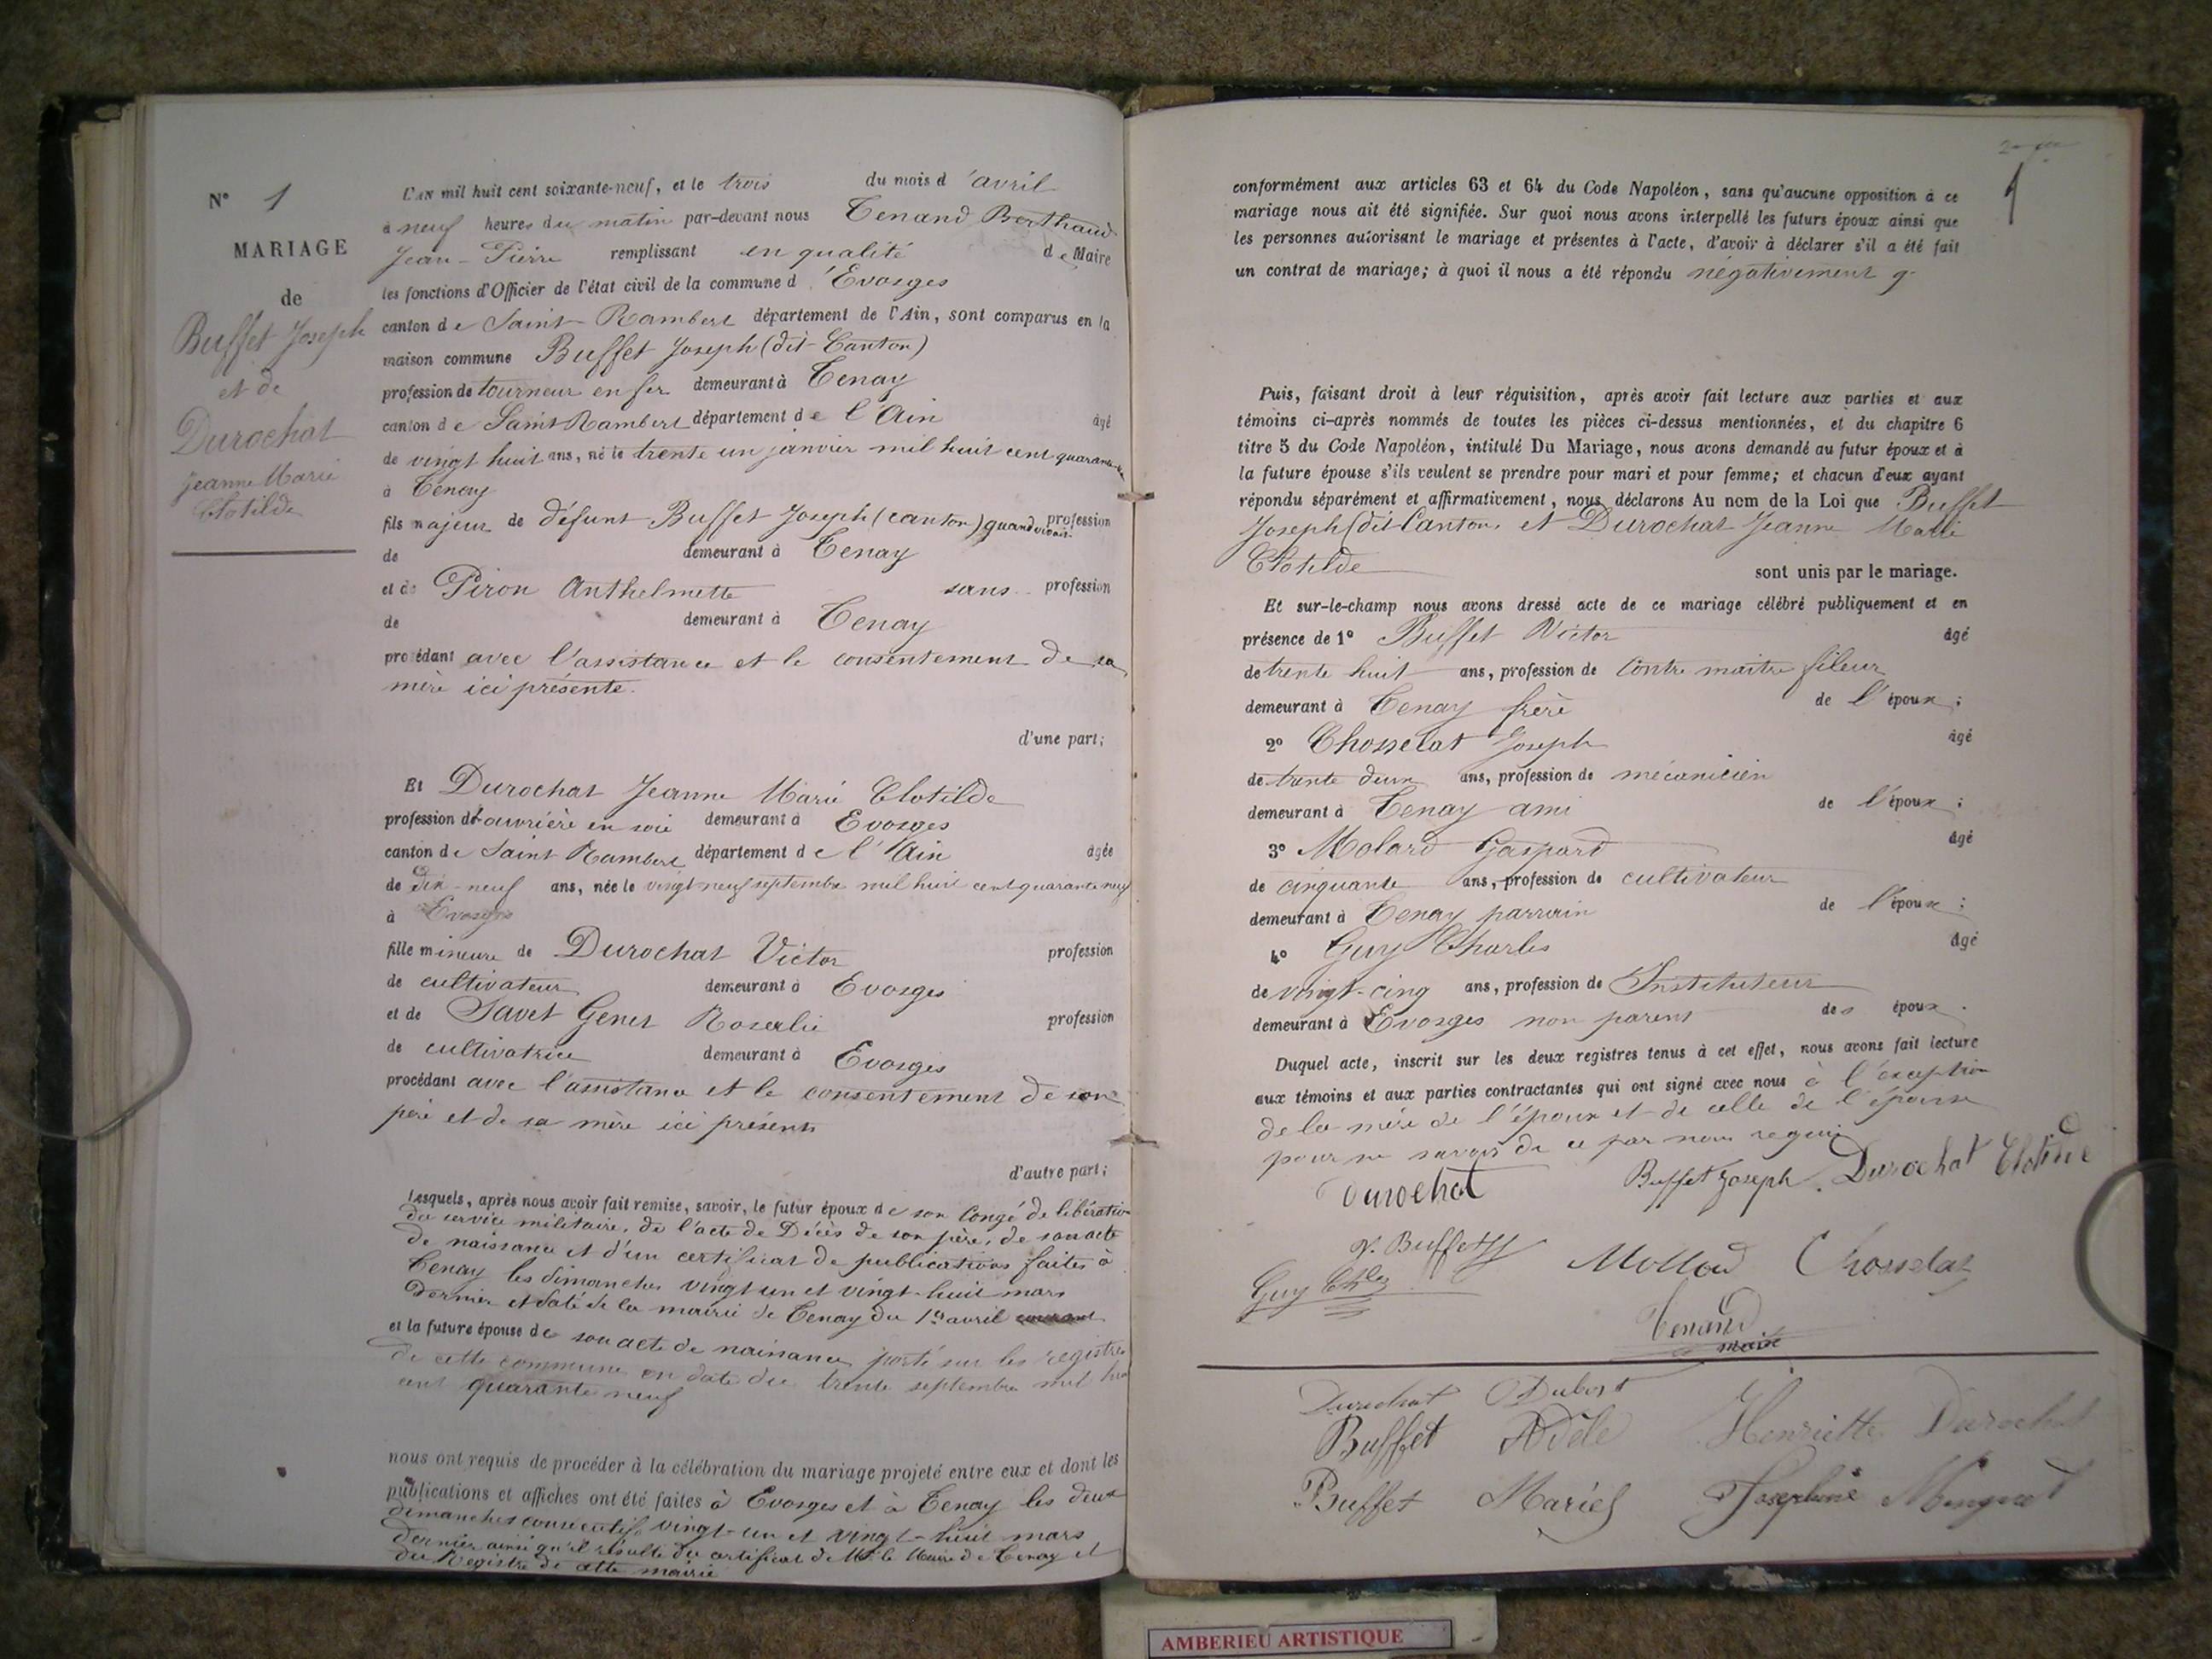 N° 1
MARIAGE
de
Buffet Joseph
et de
Durochat
Jeanne Marie
Clotilde
L'an mil huit cent soixante-neuf, et le trois du mois d'avril
à neuf heures du matin par-devant nous Tenand Berthaud
Jean-Pierre remplissant en qualité de Maire
les fonctions d'Officier de l'état civil de la commune d'Evosges
canton de Saint-Rambert département de l'Ain, sont comparus en la
maison commune Buffet Joseph (dit Canton)
profession de tourneur en fer demeurant à Tenay
canton de Saint Rambert département de l'Ain âgé
de vingt huit ans, né le trente un janvier mil huit cent quarante-un
à Tenay
fils majeur de défunt Buffet Joseph (canton) quand vivait profession
de demeurant à Tenay
et de Piron Anthelmette sans profession
de demeurant à Tenay
procédant avec l'assistance et le consentement de sa
mère ici présente.
d'une part;
Et Durochat Jeanne Marie Clotilde
profession d'ouvrière en soie demeurant à Evosges
canton de Saint Rambert département de l'Ain âgée
de dix-neuf ans, née le vingt neuf septembre mil huit cent quarante neuf
à Evosges
fille mineure de Durochat Victor profession
de cultivateur demeurant à Evosges
et de Savet Genet Rosalie profession
de cultivatrice demeurant à Evosges
procédant avec l'assistance et le consentement de son
père et de sa mère ici présents
d'autre part;
Lesquels, après nous avoir fait remise, savoir, le futur époux de son Congé de libération
du service militaire, de l'acte de Décès de son père, de son acte
de naissance et d'un certificat de publications faites à
Tenay les dimanches vingt un et vingt-huit mars
dernier et daté de la mairie de Tenay du 1er avril courant
et la future épouse de son acte de naissance porté sur les registres
de cette commune en date du trente septembre mil huit
cent quarante neuf
nous ont requis de procéder à la célébration du mariage projeté entre eux et dont les
publications et affiches ont été faites à Evosges et à Tenay les deux
dimanches consécutifs vingt-un et vingt-huit mars
dernier ainsi qu'il résulte du certificat de Mr le Maire de Tenay et
du Registre de cette mairie
1
conformément aux articles 63 et 64 du Code Napoléon, sans qu'aucune opposition à ce
mariage nous ait été signifiée. Sur quoi nous avons interpellé les futurs époux ainsi que
les personnes autorisant le mariage et présentes à l'acte, d'avoir à déclarer s'il a été fait
un contrat de mariage; à quoi il nous a été répondu négativement
Puis, faisant droit à leur réquisition, après avoir fait lecture aux parties et aux
témoins ci-après nommés de toutes les pièces ci-dessus mentionnées, et du chapitre 6
titre 5 du Code Napoléon, intitulé Du Mariage, nous avons demandé au futur époux et à
la future épouse s'ils veulent se prendre pour mari et pour femme; et chacun d'eux ayant
répondu séparément et affirmativement, nous déclarons Au nom de la Loi que Buffet
Joseph (dit Canton, et Durochat Jeanne Marie
Clotilde sont unis par le mariage.
Et sur-le-champ nous avons dressé acte de ce mariage célébré publiquement et en
présence de 1° Buffet Victor âgé
de trente huit ans, profession de Contre maître fileur
demeurant à Tenay frère de l'époux;
2° Chosselat Joseph âgé
de trente deux ans, profession de mécanicien
demeurant à Tenay ami de l'époux;
3° Molard Gaspard âgé
de cinquante ans, profession de cultivateur
demeurant à Tenay parrain de l'époux;
4° Guy Charles âgé
de vingt-cinq ans, profession de Instituteur
demeurant à Evosges non parent des époux.
Duquel acte, inscrit sur les deux registres tenus à cet effet, nous avons fait lecture
aux témoins et aux parties contractantes qui ont signé avec nous à l'exception
de la mère de l'époux et de celle de l'épouse
pour ne savoir de ce par nous requis
Durochat Buffet Joseph Durochat Clotilde
V. Buffet Mollard Chosselat
Guy Chles
Tenand
maire
Durochat Dubost
Buffet Adèle Henriette Durochat
Buffet Marie Josephine Minguet
AMBERIEU ARTISTIQUE